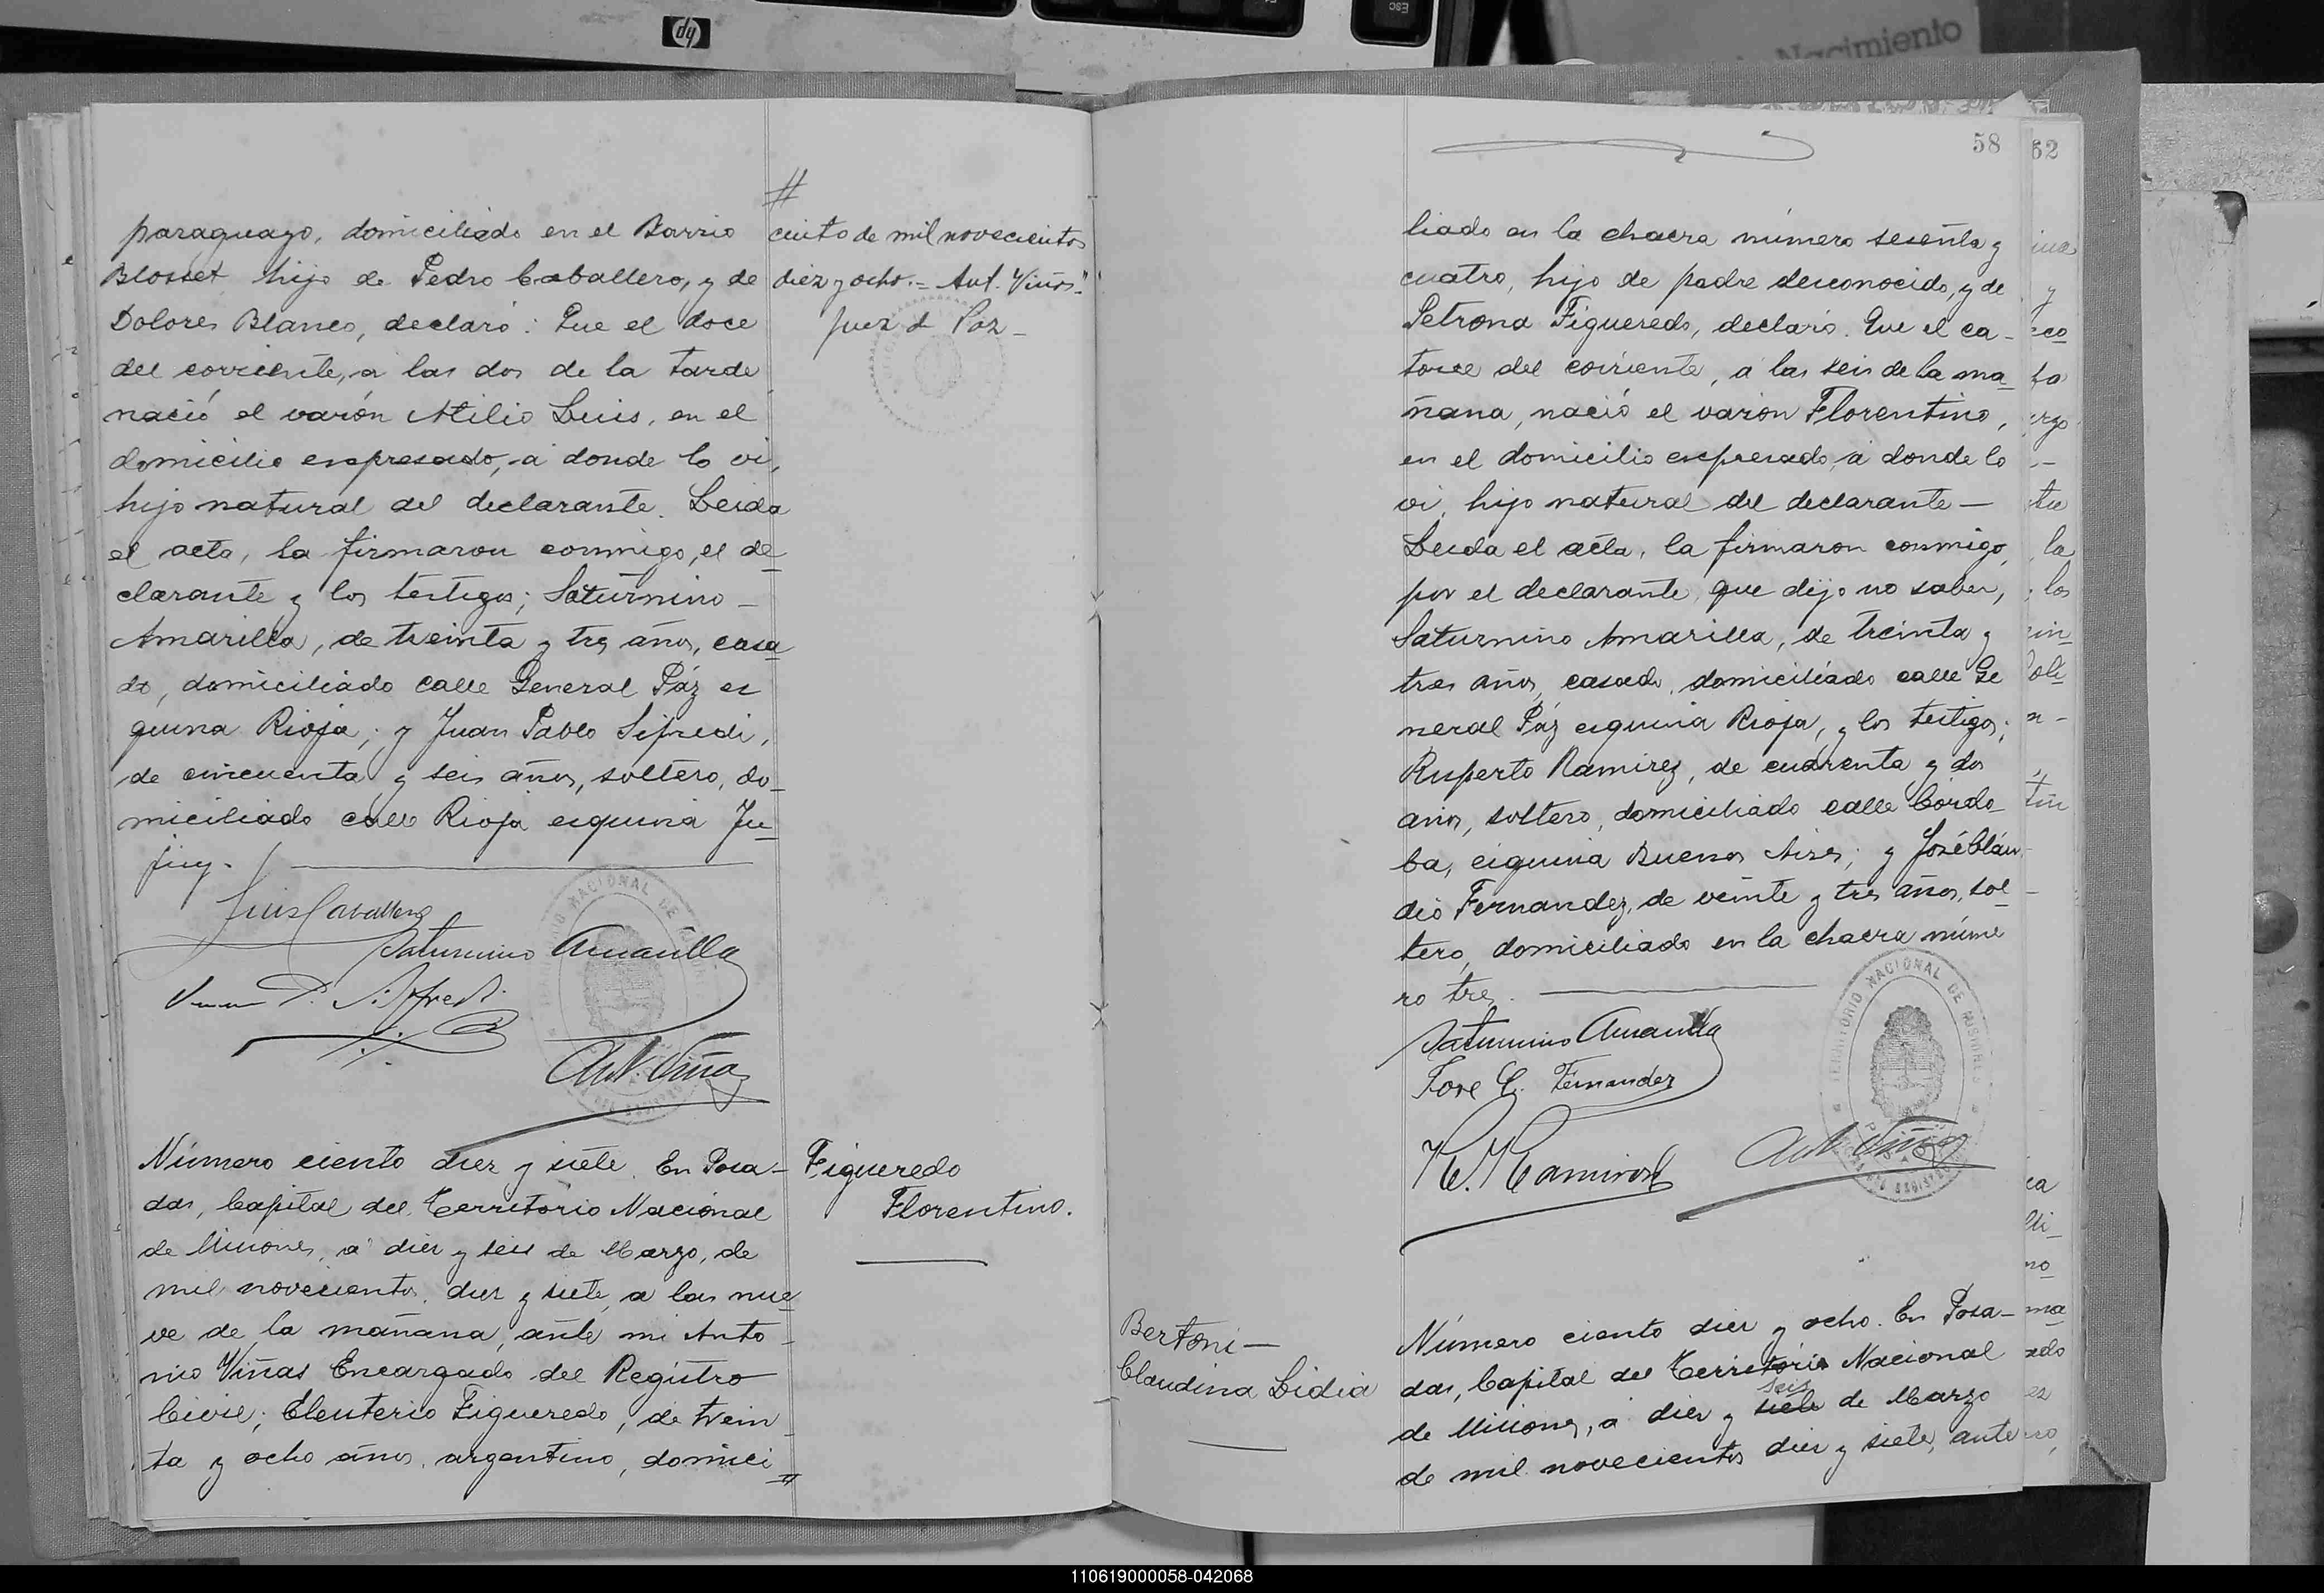 hp
ESC
Nacimiento
paraguayo, domiciliado en el Barrio
Blosset hijo de Pedro Caballero, y de
Dolores Blanco, declaró: Que el doce
del corriente, a las dos de la tarde
nació el varón Atilio Luis, en el
domicilio expresado, a donde lo vi,
hijo natural del declarante. Leida
el acta, la firmaron conmigo, el de_
clarante y los testigos; Saturnino _
Amarilla, de treinta y tres años, casa_
do, domiciliado calle General Páz es
quina Rioja; y Juan Pablo Sifredi,
de cincuenta y seis años, soltero, do_
miciliado calle Rioja esquina Ju_
juy.
Luis Caballero
Saturnino Amarilla
Juan P. Siffredi
Ant. Viñas
Número ciento diez y siete. En Posa-
das, Capital del Territorio Nacional
de Misiones, a diez y seis de Marzo, de
mil novecientos diez y siete, a las nue_
ve de la mañana, ante mi Anto_
nio Viñas Encargado del Registro
Civil; Eleuterio Figueredo, de trein_
ta y ocho años, argentino, domici_
#
ciento de mil novecientos
diez y ocho.= Ant. Viñas=
Juez de Paz_
Figueredo
Florentino.
58
62
liado en la chacra número sesenta y
cuatro, hijo de padre desconocido, y de
Petrona Figueredo, declaró. Que el ca_
torce del corriente, a las seis de la ma_
ñana, nació el varón Florentino,
en el domicilio expresado, a donde lo
vi, hijo natural del declarante—
Leida el acta, la firmaron conmigo,
por el declarante, que dijo no saber,
Saturnino Amarilla, de treinta y
tres años, casado, domiciliado calle Ge
neral Páz esquina Rioja, y los testigos;
Ruperto Ramirez, de cuarenta y dos
años, soltero, domiciliado calle Cordo_
ba, esquina Buenos Aires; y José Cláu
dio Fernandez, de veinte y tres años, sol_
tero, domiciliado en la chacra núme
ro tres.
Saturnino Amarilla
Jose C. Fernandez
R. Ramirez
Ant. Viñas
TERRITORIO NACIONAL DE MISIONES
Bertoni—
Claudina Lidia
Número ciento diez y ocho. En Posa-
das, Capital del Territorio Nacional
seis
de Misiones, a diez y siete de Marzo
de mil novecientos diez y siete, ante
110619000058-042068